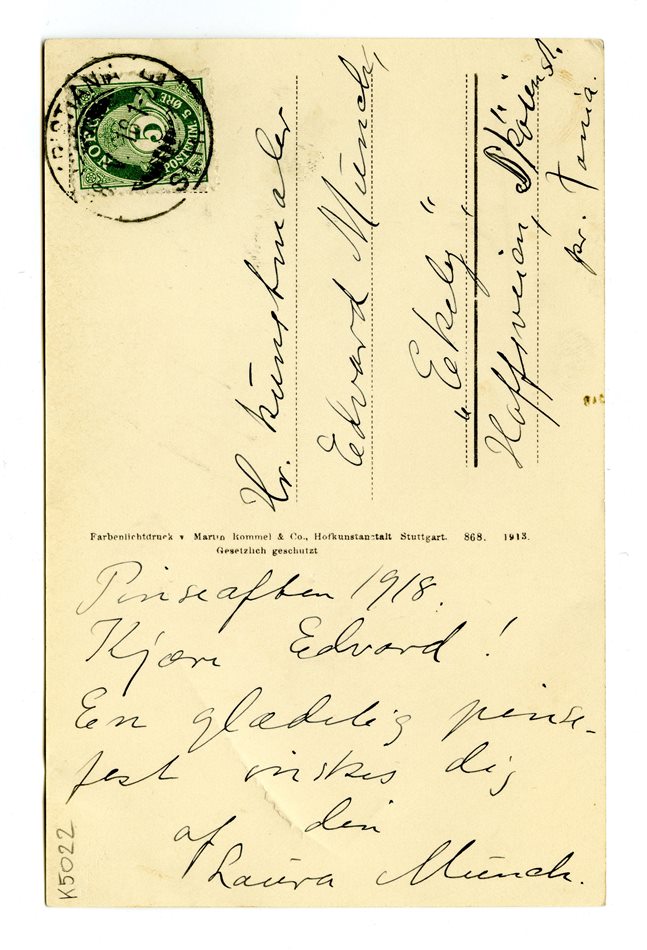 Pinseaften 1918.
Kjære Edvard!
En glædelig pinse-
fest ønskes dig
af din
Laura Munch.
Hr. kunstmaler
Edvard Munch,
"Ekely"
Hoffsveien, Skøienst.
pr. Fania.
Farbenlichtdruck v. Martin Rommel & Co., Hofkunstanstalt Stuttgart. 868. 1913.
Gesetzlich geschützt
POSTFRIM. 5 ØRE
NORGE
5
KRISTIANIA
K5022